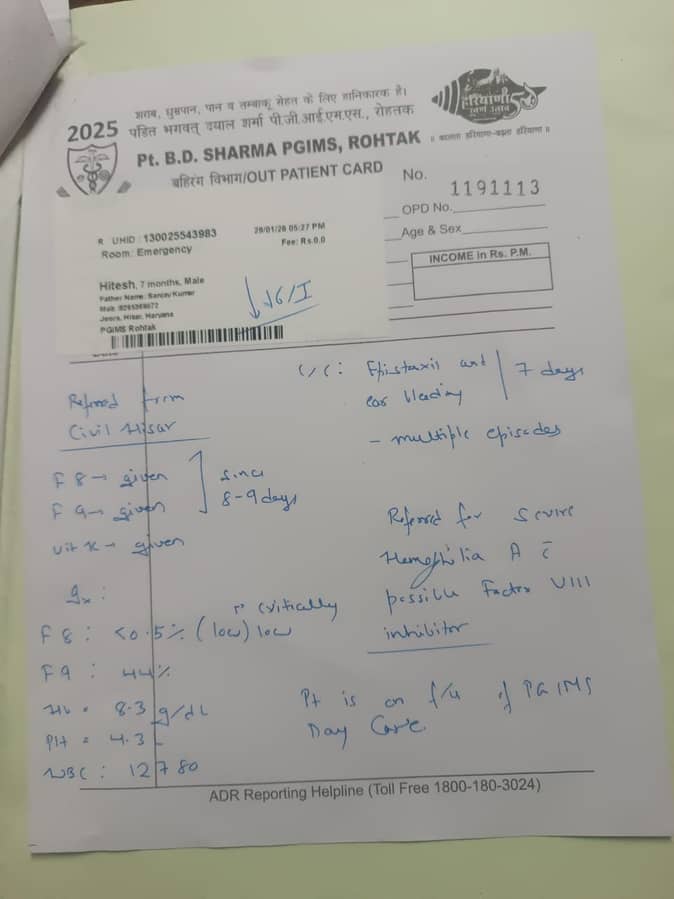 शराब, धुम्रपान, पान व तम्बाकू सेहत के लिए हानिकारक है।
हरियाणा
2025
पंडित भगवत् दयाल शर्मा पी.जी.आई.एम.एस., रोहतक
Pt. B.D. SHARMA PGIMS, ROHTAK
बहिरंग विभाग/OUT PATIENT CARD
No.
1191113
OPD No.
Age & Sex
INCOME in Rs. P.M.
R UHID : 130025543983
29/01/26 05:27 PM
Room: Emergency
Fee: Rs.0.0
Hitesh, 7 months, Male
Father Name: Sanjay Kumar
Jeora, Hisar, Haryana
PGIMS Rohtak
C/C: Epistaxis and
ear bleeding
7 days
- multiple episodes
Referred from
Civil Hisar
F 8 → given
F 9 → given
since
8-9 days
Vit K → given
Referred for Severe
Hemophilia A c̄
possible Factor VIII
inhibitor
Ix :
F 8 : <0.5% (low) critically low
F 9 : 44%
Hb = 8.3 g/dL
Plt = 4.3 L
WBC : 12780
Pt is on f/u of PGIMS
Day Care
ADR Reporting Helpline (Toll Free 1800-180-3024)